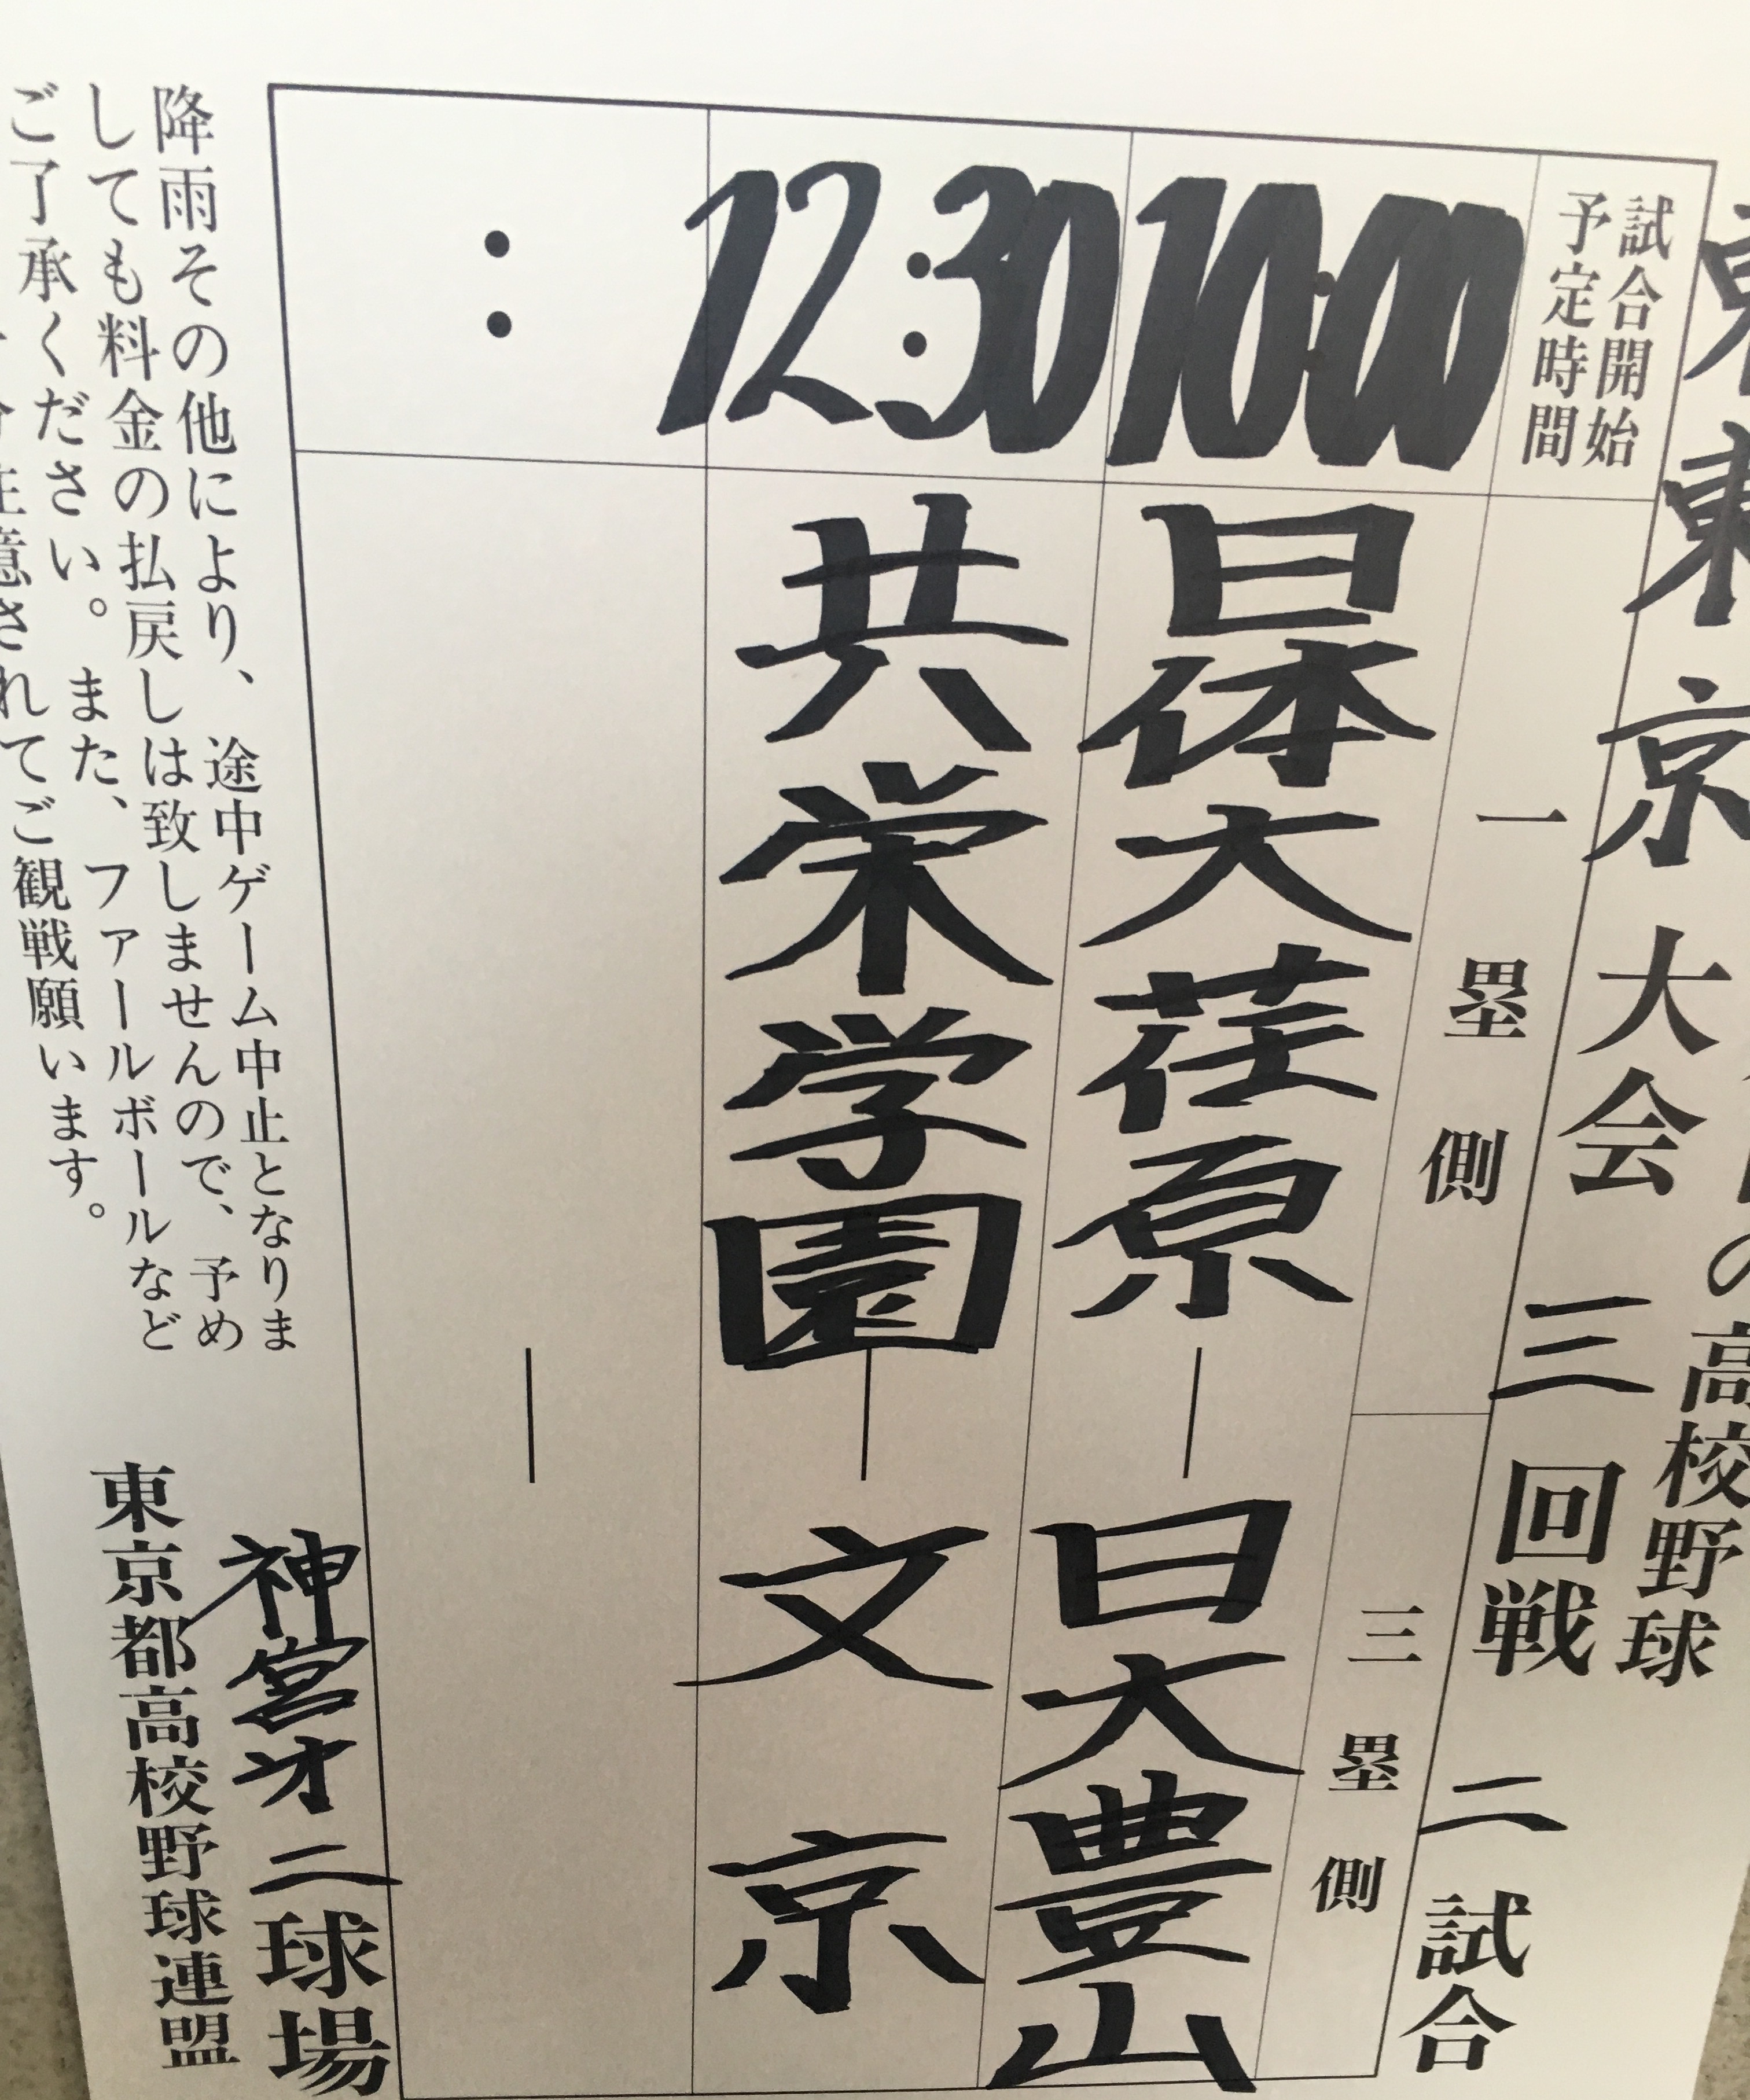 の高校野球
東東京大会 三回戦 二試合
試合開始
予定時間
一塁側
三塁側
10:00 日体大荏原 ― 日大豊山
12:30 共栄学園 ― 文京
: ―
神宮才二球場
降雨その他により、途中ゲーム中止となりま
しても料金の払戻しは致しませんので、予め
ご了承ください。また、ファールボールなど
注意されてご観戦願います。
東京都高校野球連盟